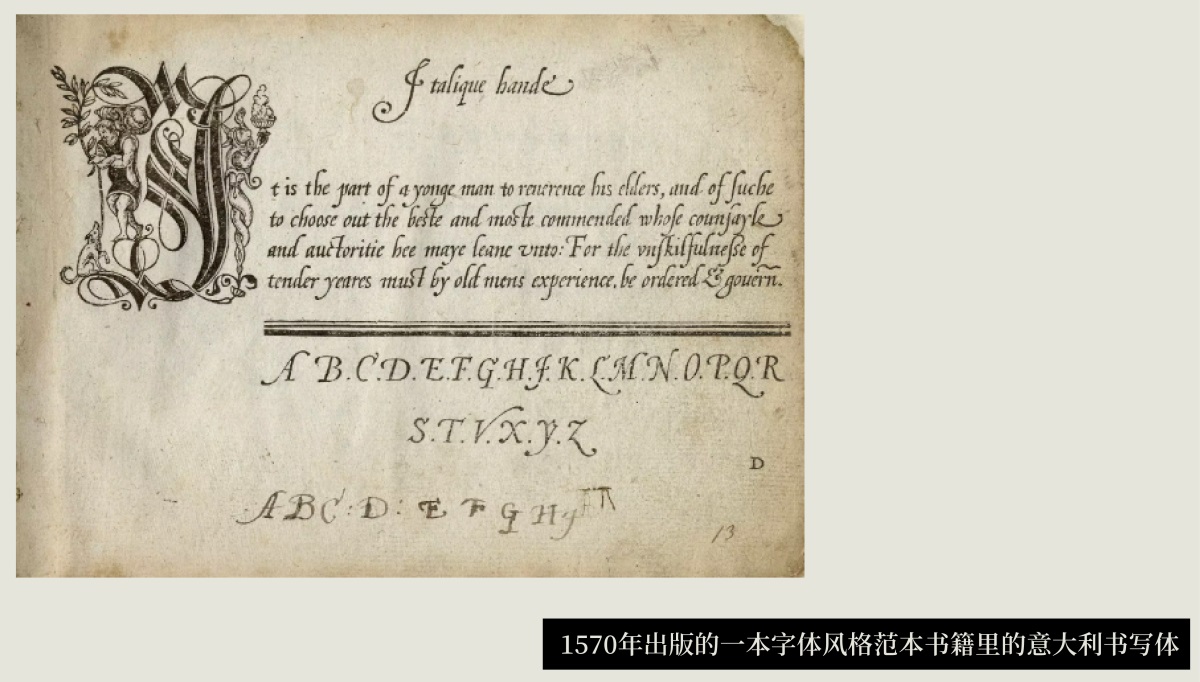 Italique hande
It is the part of a yonge man to reuerence his elders, and of suche
to choose out the beste and moste commended whose counsayle
and auctoritie hee maye leane vnto: For the vnskilfulnesse of
tender yeares must by old mens experience, be ordered & gouern̄.
A B.C.D.E.F.G.H.J.K.L.M.N.O.P.Q.R
S.T.V.X.Y.Z
D
A B C : D : E F G H
13
1570年出版的一本字体风格范本书籍里的意大利书写体